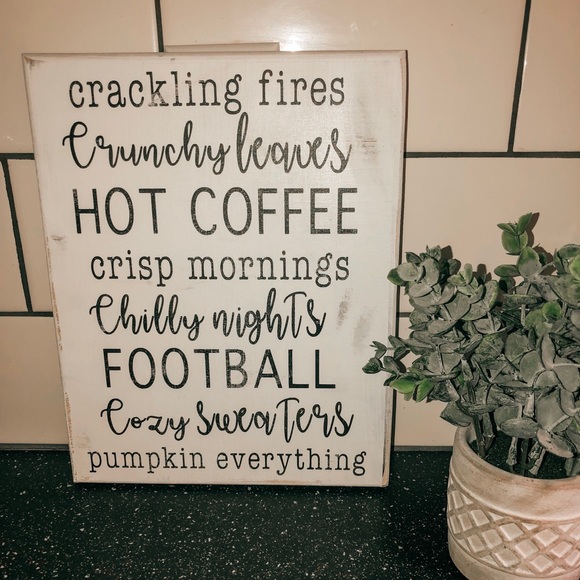 crackling fires
Crunchy leaves
HOT COFFEE
crisp mornings
Chilly nights
FOOTBALL
Cozy sweaters
pumpkin everything